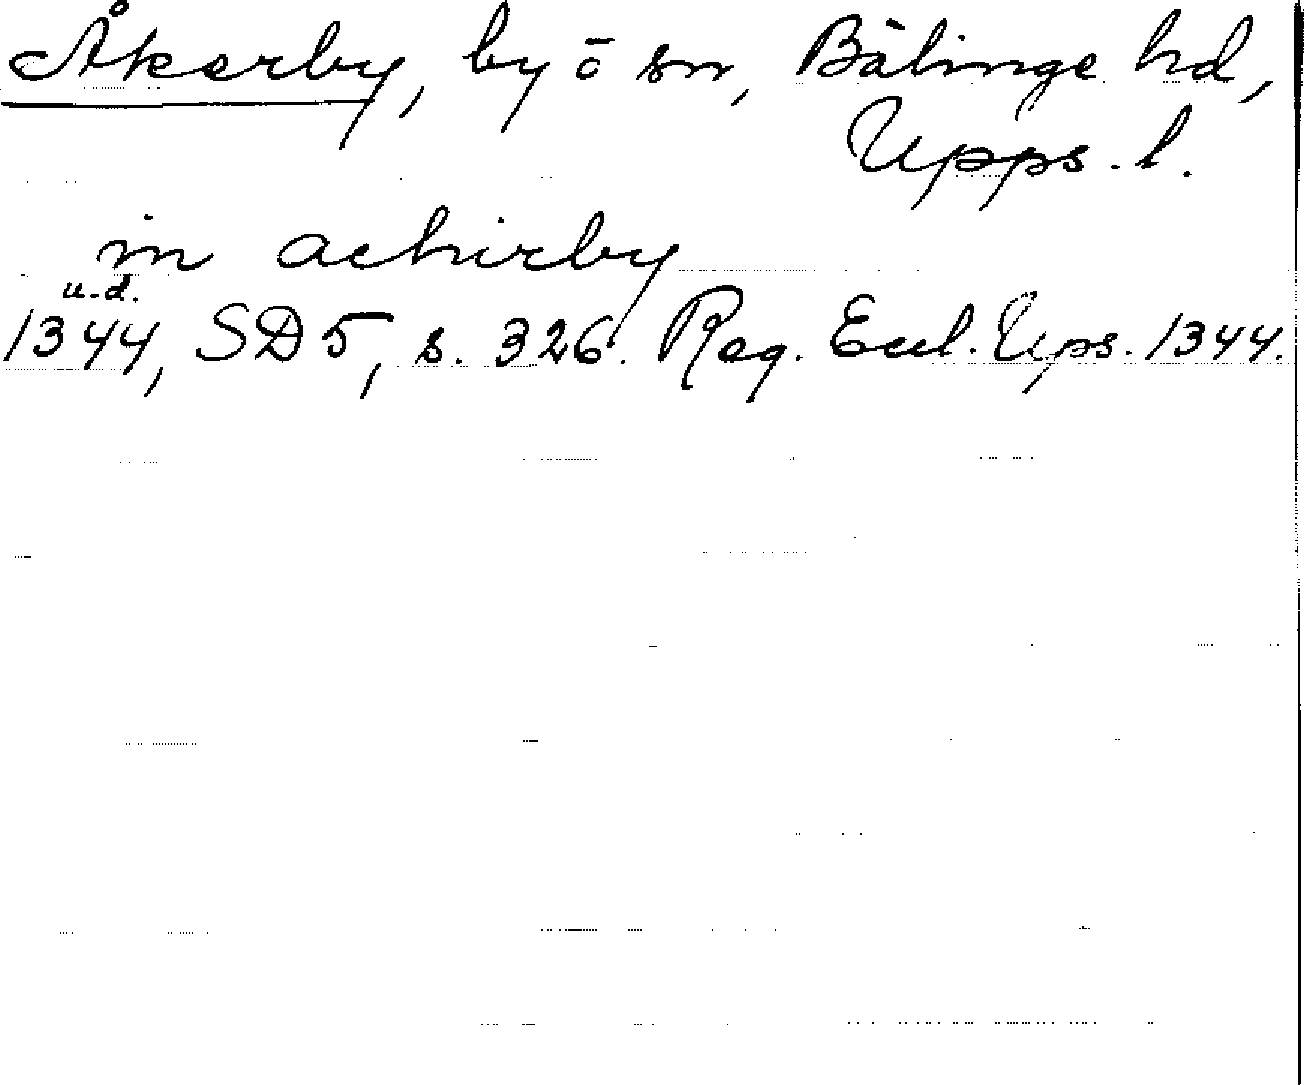 Åkerby, by o sn, Bälinge hd,
Upps. l.
in achirby
u.d.
1344, SD 5, s. 326. Reg. Eccl. Ups. 1344.